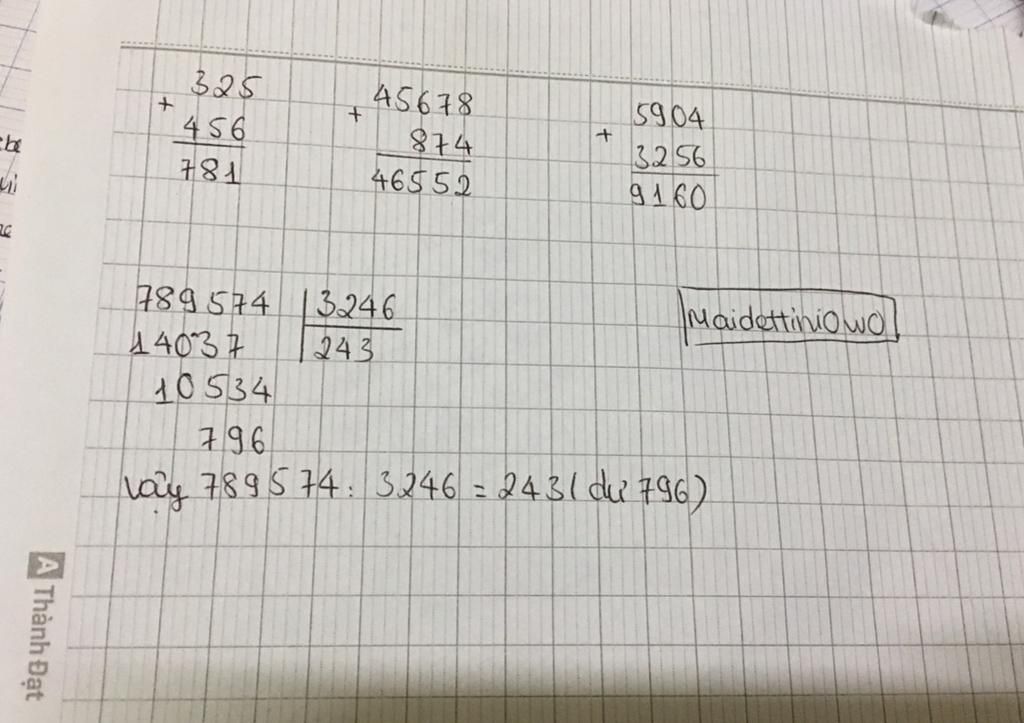 325
+
456
781
45678
+
874
46552
5904
+
3256
9160
789574 3246
14037 243
10534
796
Maidettiniowo
vậy 789574 : 3246 = 243 (dư 796)
A Thành Đạt